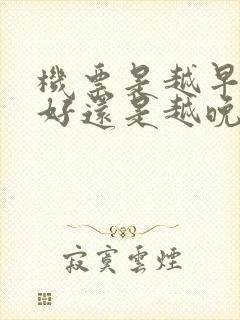 機票是越早
好還是越晚
寂寞雲煙